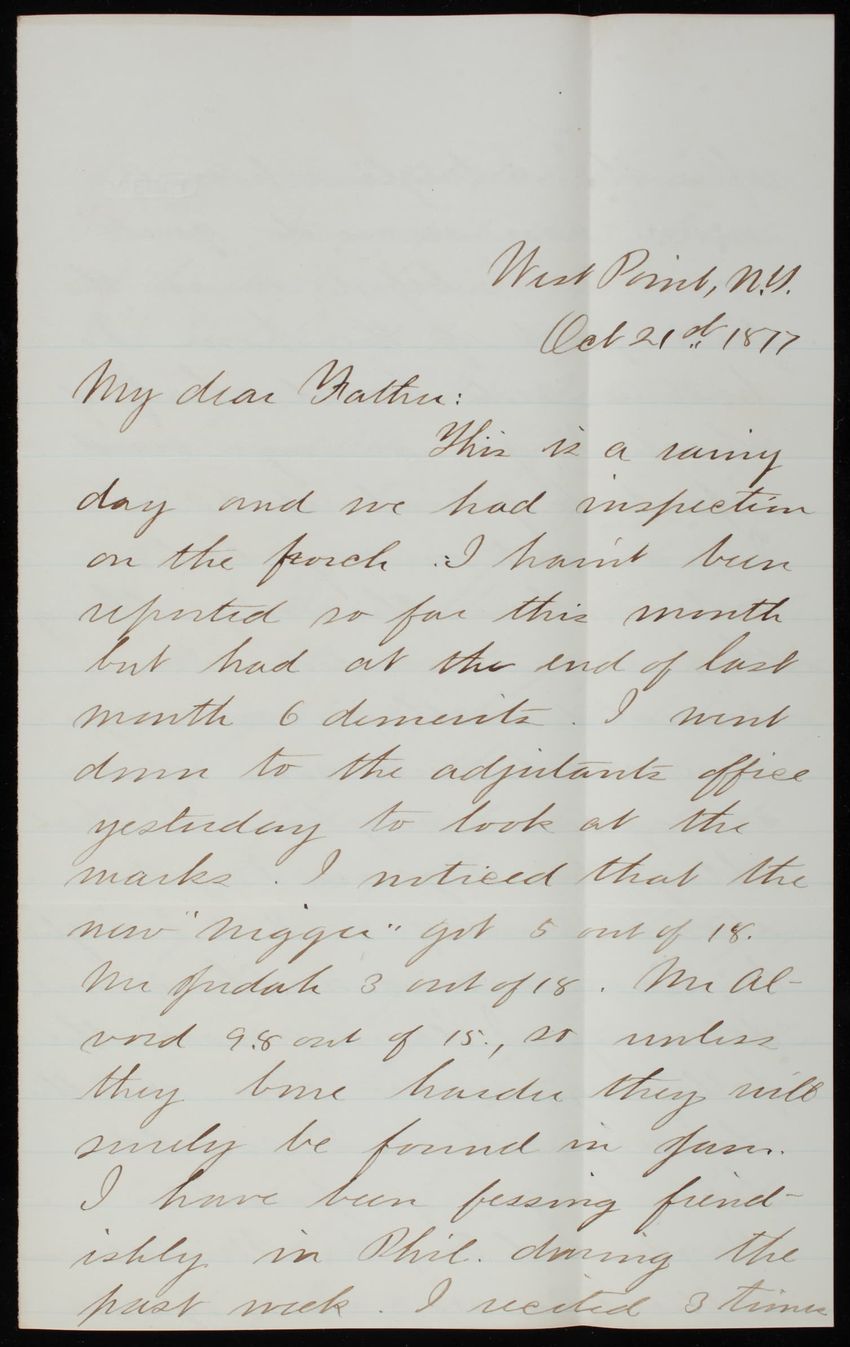 West Point, N.Y.
Oct 21st 1877
My dear Father:
This is a rainy
day and we had inspection
on the porch. I hain't been
reported so far this month
but had at the end of last
month 6 demerits. I went
down to the adjutants office
yesterday to look at the
marks. I noticed that the
new "nigger" got 5 out of 18.
Mr Judah 3 out of 18. Mr Al-
vord 9.8 out of 15., so unless
they bone harder they will
surely be found in Jan.
I have been fessing fiend-
ishly in Phil. during the
past week. I recited 3 times